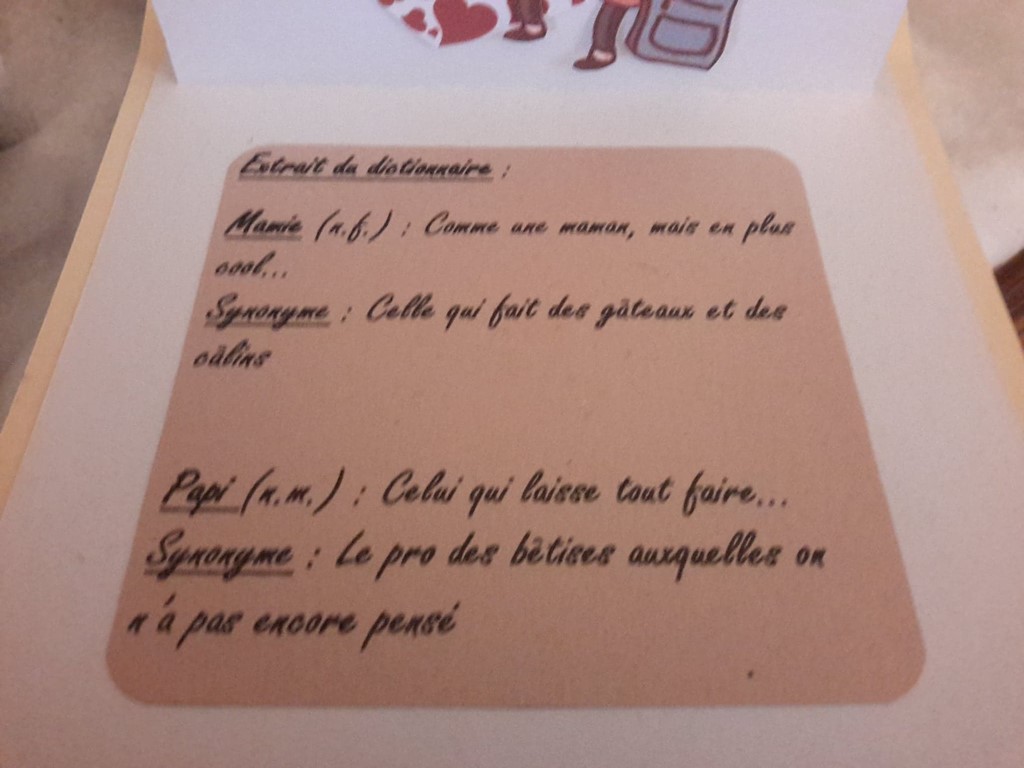 Extrait du dictionnaire :
Mamie (n.f.) : Comme une maman, mais en plus
cool...
Synonyme : Celle qui fait des gâteaux et des
câlins
Papi (n.m.) : Celui qui laisse tout faire...
Synonyme : Le pro des bêtises auxquelles on
n'à pas encore pensé